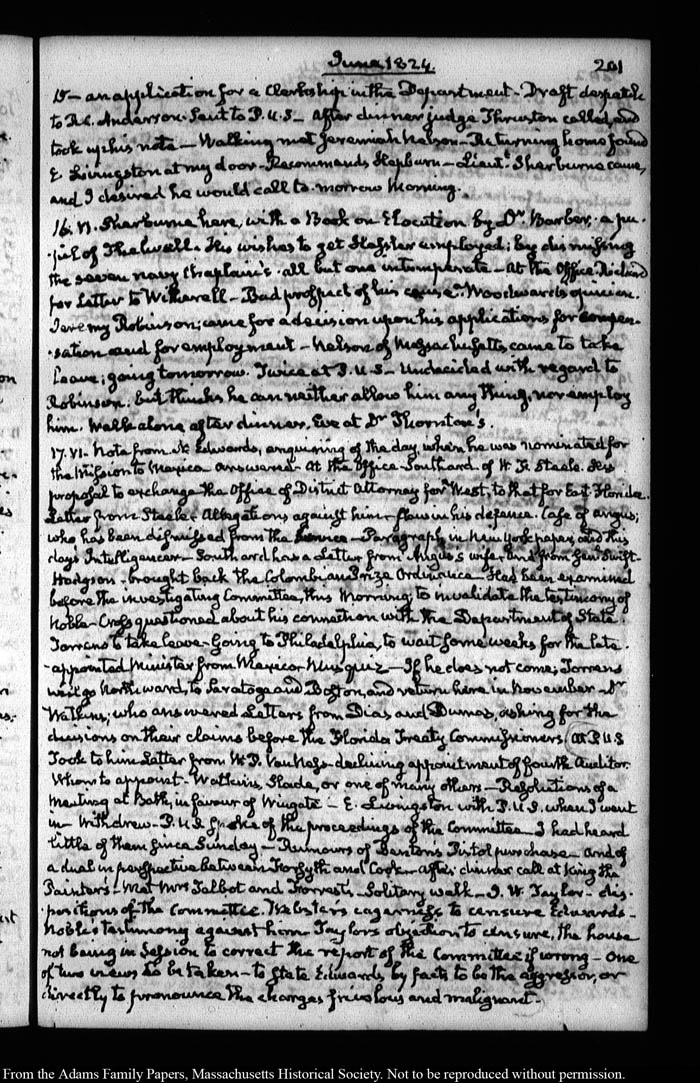 June 1824.
201
15 — an application for a Clerkship in the Department — Draft despatch
to R. C. Anderson. Sent to P. U. S — After dinner judge Thruston called, and
took up his note — Walking met Jeremiah Nelson — Returning home found
E Livingston at my door — Recommends Hepburn — Lieut.t Sherburne came,
and I desired he would call to-morrow Morning.
16. Sherburne here, with a Book on Elocution by Dr. Barber, a pu-
-pil of Thelwall. He wishes to get Hassler employed; by dismissing
the seven navy Chaplain's. all but one intemperate — At the Office. Richard
for Letter to Witherell — Bad prospect of his cause. Woodward's opinion.
Jeremy Robinson; came for a decision upon his applications for compen-
-sation and for employment — Nelson of Massachusetts came to take
leave; going tomorrow. Twice at P. U. S — Undecided with regard to
Robinson. but thinks he can neither allow him any thing, nor employ
him. Walk alone after dinner. Eve at Dr Thornton's.
17. VI. Note from N. Edwards, enquiring of the day, when he was nominated for
the Mission to Mexico answered — At the Office — Southard. of W. F. Steele. His
proposal to exchange the Office of District Attorney for West, to that for East Florida.
Letter from Steele — Allegations against him — flaw in his defence. Case of Angus;
who has been dismissed from the service — Paragraph in New York paper, and this
day's Intelligencer — Southard has a Letter from Angus's wife, and from Genl Swift —
Hodgson — brought back the Colombian Prize Ordinance — Had been examined
before the investigating Committee, this Morning, to invalidate the testimony of
Noble — Cross questioned about his connection with the Department of State.
Torrens to take leave — Going to Philadelphia, to wait some weeks for the late
-appointed Minister from Mexico — If he does not come, Torrens
will go Northward, to Saratoga and Boston, and return here in November — Dr
Watkins; who answered Letters from Dias and Dumas, asking for the
decisions on their claims before the Florida Treaty Commissioners (At P. U S
Took to him Letter from W. P. Van Ness — declining appointment of fourth Auditor.
Whom to appoint — Watkins, Slade, or one of many others — Resolutions of a
meeting at Bath, in favour of Wingate — E. Livingston with P. U. S. when I went
in — Withdrew — P. U. S spoke of the proceedings of the Committee — I had heard
little of them since Sunday — Rumours of Benton's Pistol purchase — And of
a duel in perspective between Forsyth and Cook — After dinner call at King the
Painter's — Met Mrs Talbot and Forrest — Solitary walk — J. W. Taylor — dis-
positions of the Committee. Webster's eagerness to censure Edwards —
Noble's testimony against him. Taylor's objection to censure, the house
not being in Session to correct the report of the Committee if wrong — One
of two views to be taken — to State Edwards by facts to be the aggressor, or
directly to pronounce the charges frivolous and malignant —
From the Adams Family Papers, Massachusetts Historical Society. Not to be reproduced without permission.